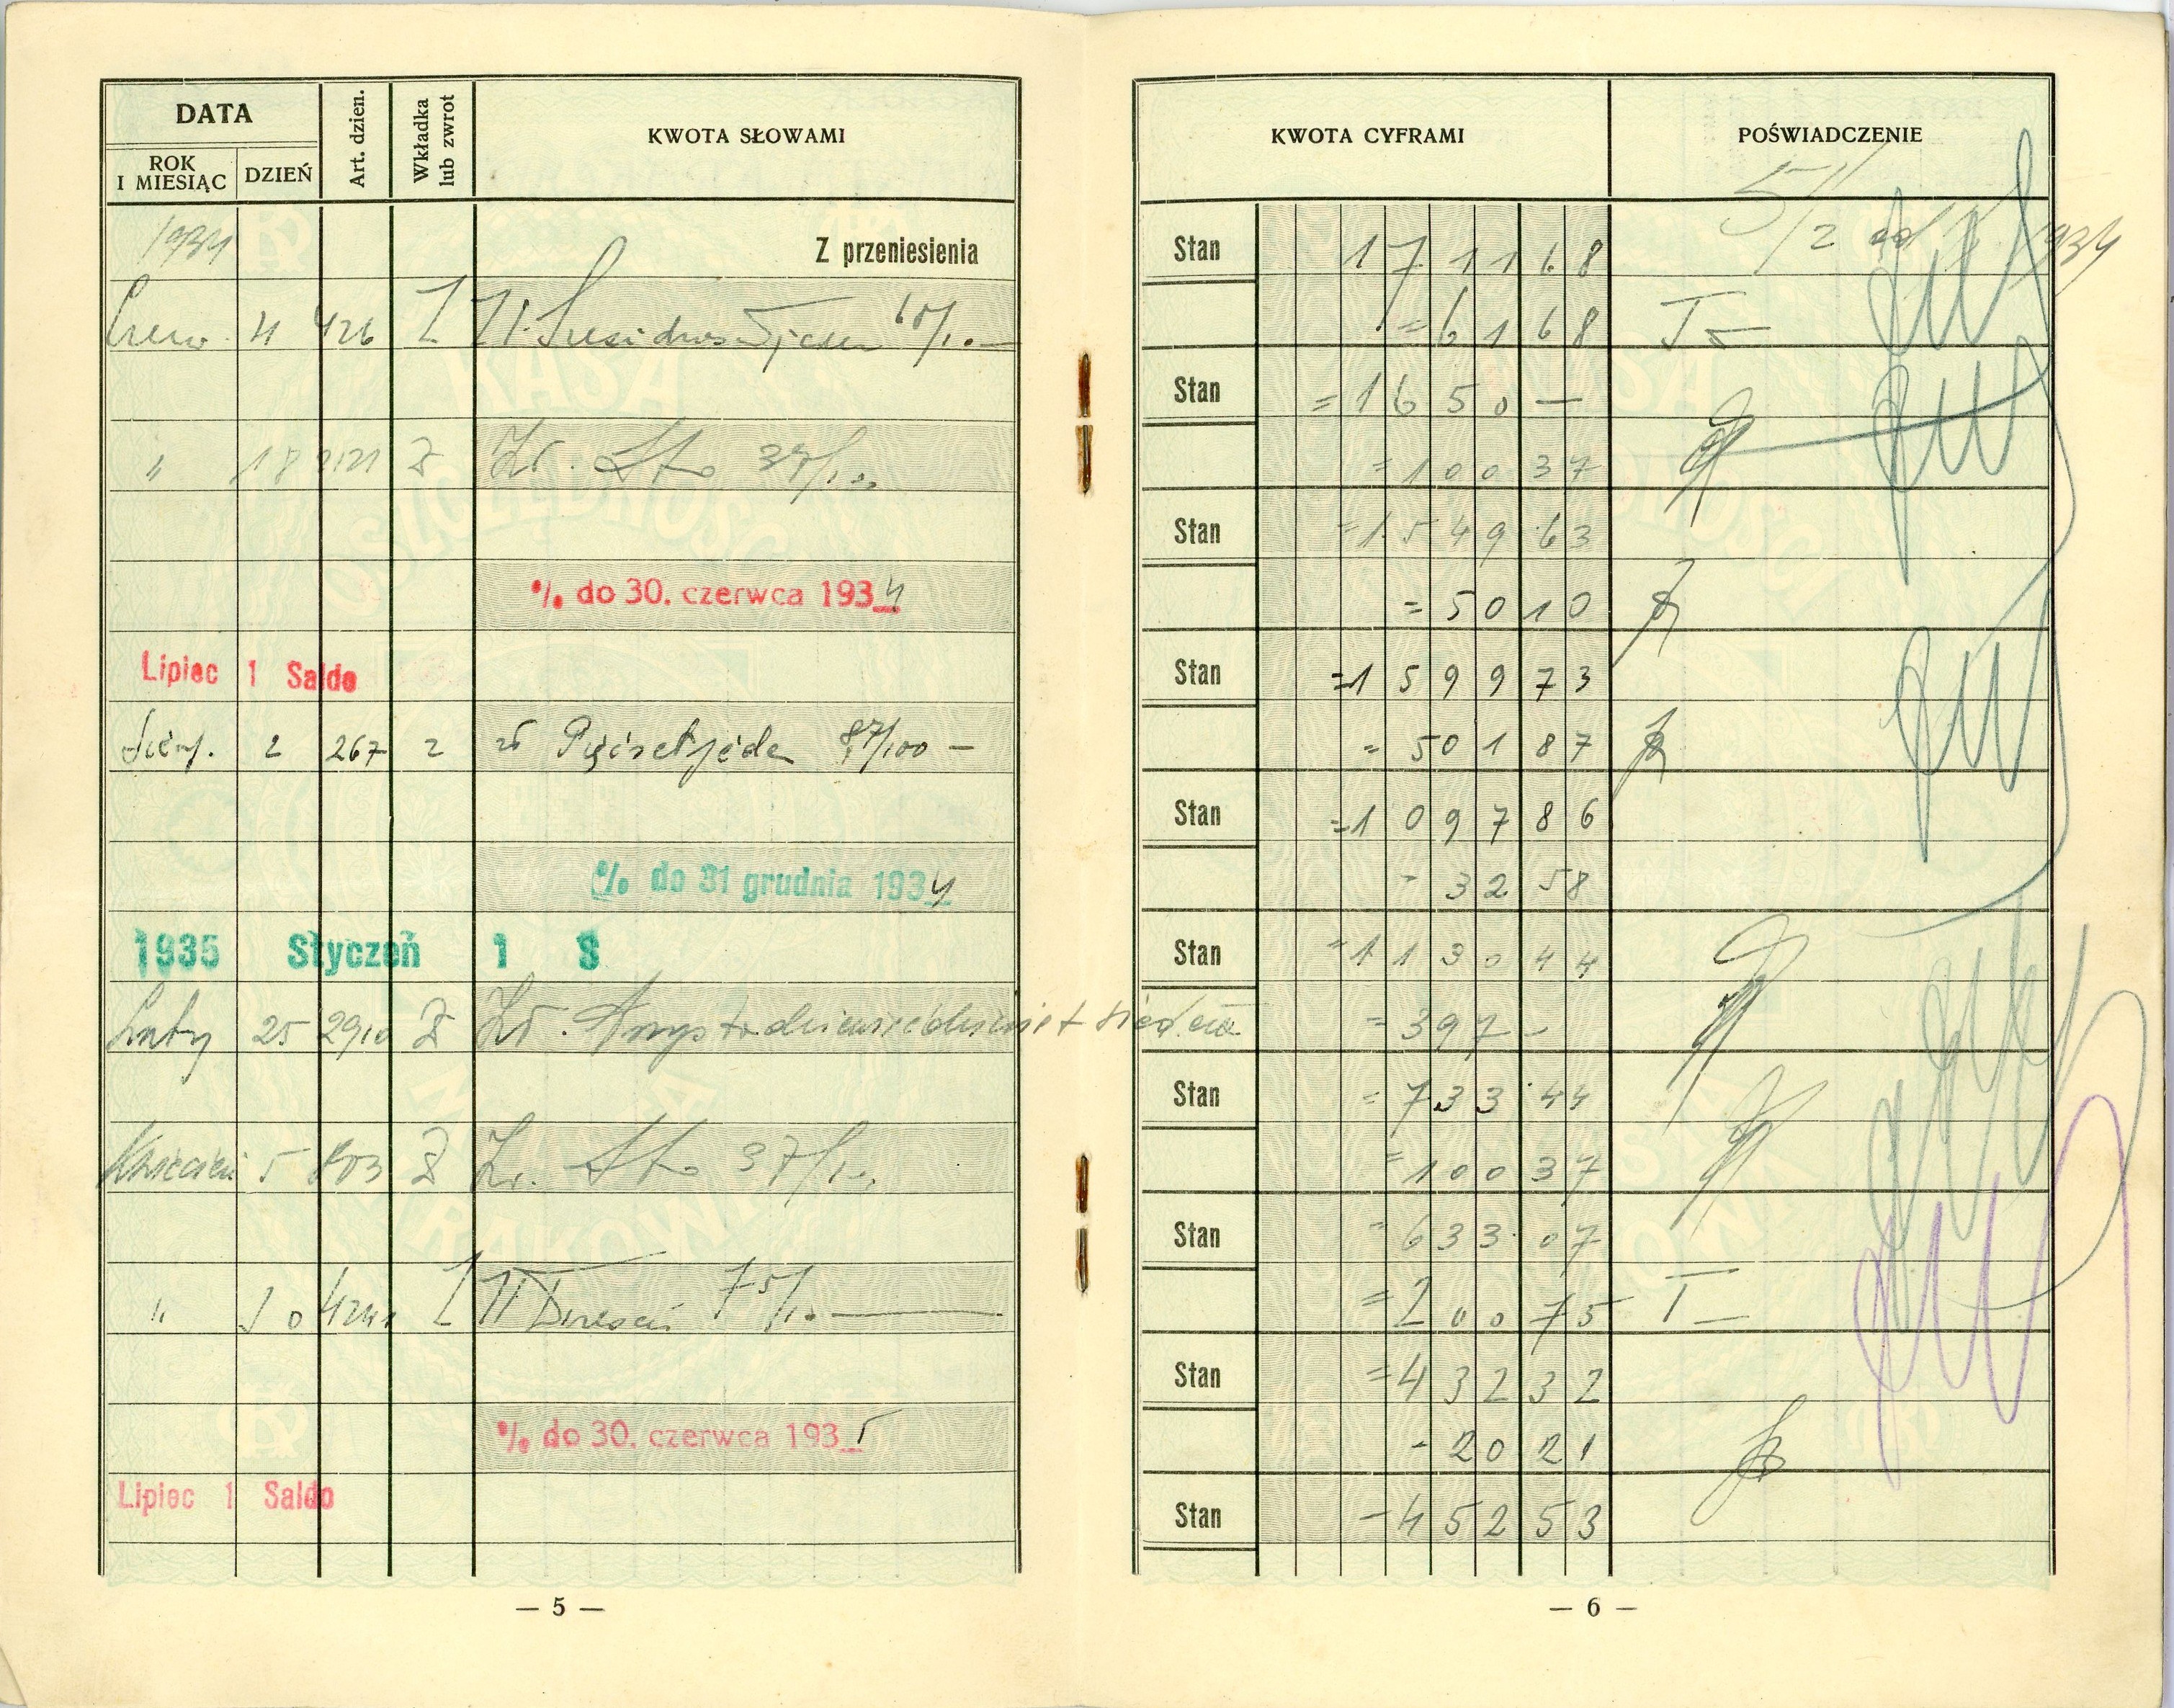 DATA
ROK
I MIESIĄC
DZIEŃ
Art. dzien.
Wkładka
lub zwrot
KWOTA SŁOWAMI
1934
Z przeniesienia
Czerw. 4 426 Z Zł. 68/1..—
" 18 Z Zł. Sto 37/1..
% do 30. czerwca 1934
Lipiec 1 Saldo
Sierp. 2 267 z zł Pięćsetjeden 87/100 —
% do 31 grudnia 1934
1935 Styczeń 1 S
Luty 25 2910 Z Zł. Trzystadziewięćdziesiąt siedem
Kwiecień 5 803 Z Zł. Sto 37/1..
" Z Zł Dwieście 75/1..—
% do 30. czerwca 1935
Lipiec 1 Saldo
— 5 —
KWOTA CYFRAMI
POŚWIADCZENIE
5% od 1934
Stan 1711 68
= 61 68
Stan = 1650 —
= 100 37
Stan = 1549 63
= 50 10
Stan = 1599 73
= 501 87
Stan = 1097 86
- 32 58
Stan = 1130 44
= 397 —
Stan = 733 44
= 100 37
Stan = 633 07
= 200 75
Stan = 432 32
- 20 21
Stan - 452 53
— 6 —
KASA
OSZCZĘDNOŚCI
MIASTA
KRAKOWA